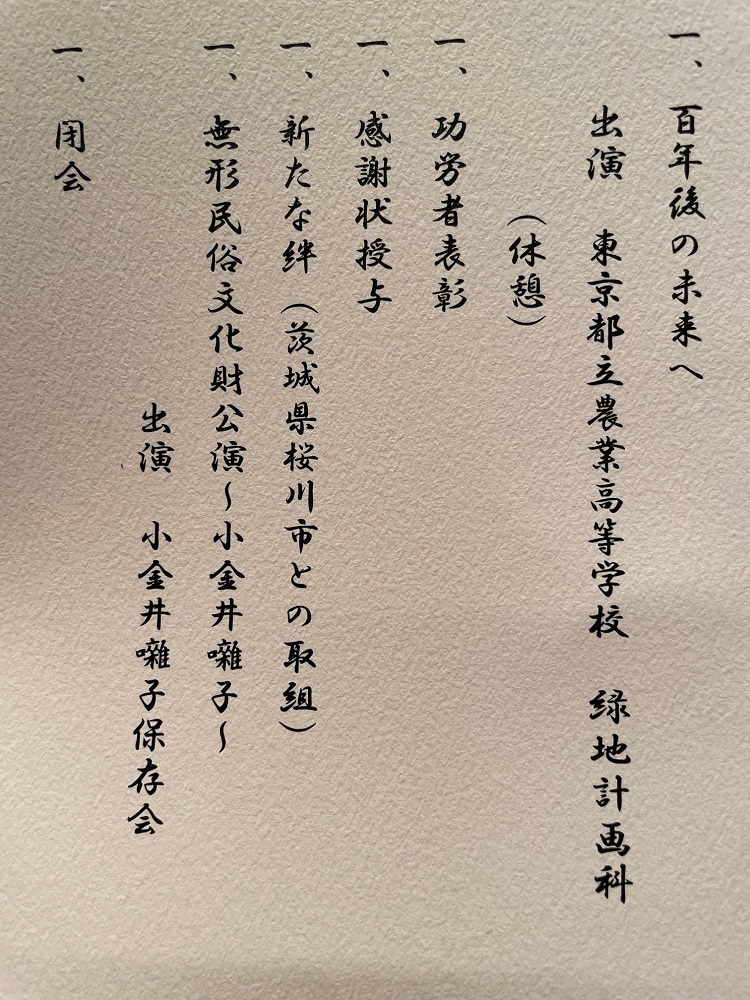 一、百年後の未来へ
出演　東京都立農業高等学校　緑地計画科
（休憩）
一、功労者表彰
一、感謝状授与
一、新たな絆（茨城県桜川市との取組）
一、無形民俗文化財公演～小金井囃子～
出演　小金井囃子保存会
一、閉会